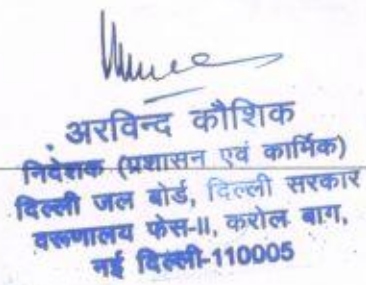 अरविन्द कौशिक
निदेशक (प्रशासन एवं कार्मिक)
दिल्ली जल बोर्ड, दिल्ली सरकार
वरूणालय फेस-II, करोल बाग,
नई दिल्ली-110005